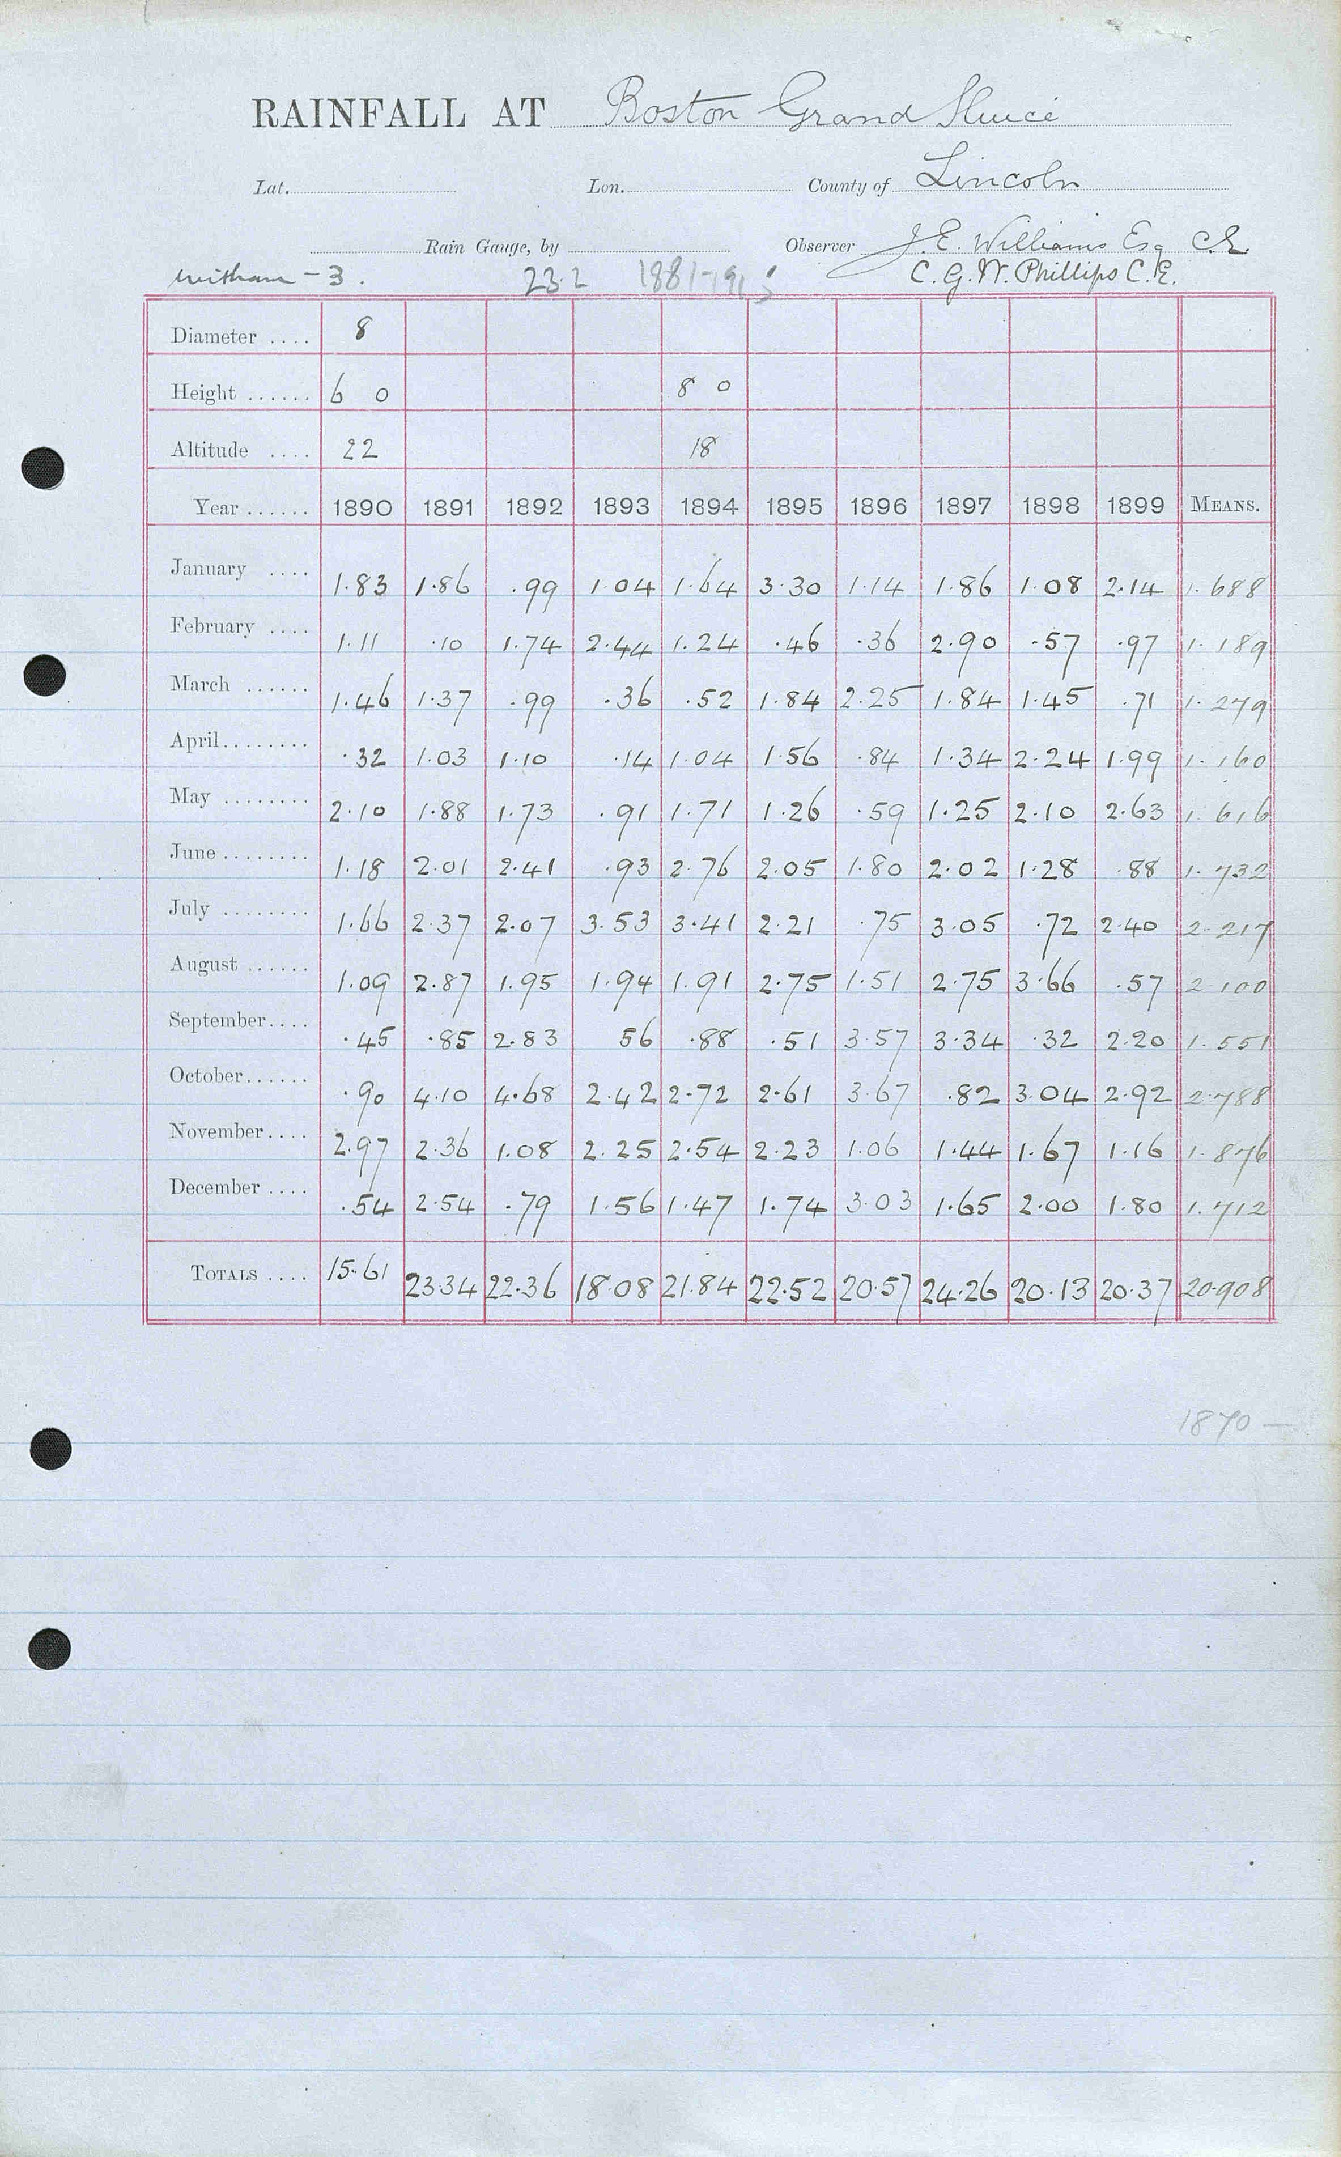 RAINFALL AT Boston Grand Sluice
Lat. Lon. County of Lincoln
Rain Gauge, by Observer J.E. Williams Esq C.E.
Witham - 3. 23.2 1881-1915 C.G.W. Phillips C.E.
Diameter .... 8
Height ...... 6 0 8 0
Altitude .... 22 18
Year ...... 1890 1891 1892 1893 1894 1895 1896 1897 1898 1899 MEANS.
January .... 1.83 1.86 .99 1.04 1.64 3.30 1.14 1.86 1.08 2.14 1.688
February .... 1.11 .10 1.74 2.44 1.24 .46 .36 2.90 .57 .97 1.189
March ...... 1.46 1.37 .99 .36 .52 1.84 2.25 1.84 1.45 .71 1.279
April........ .32 1.03 1.10 .14 1.04 1.56 .84 1.34 2.24 1.99 1.160
May ........ 2.10 1.88 1.73 .91 1.71 1.26 .59 1.25 2.10 2.63 1.616
June ........ 1.18 2.01 2.41 .93 2.76 2.05 1.80 2.02 1.28 .88 1.732
July ........ 1.66 2.37 2.07 3.53 3.41 2.21 .75 3.05 .72 2.40 2.217
August ...... 1.09 2.87 1.95 1.94 1.91 2.75 1.51 2.75 3.66 .57 2.100
September.... .45 .85 2.83 56 .88 .51 3.57 3.34 .32 2.20 1.551
October...... .90 4.10 4.68 2.42 2.72 2.61 3.67 .82 3.04 2.92 2.788
November.... 2.97 2.36 1.08 2.25 2.54 2.23 1.06 1.44 1.67 1.16 1.876
December .... .54 2.54 .79 1.56 1.47 1.74 3.03 1.65 2.00 1.80 1.712
TOTALS .... 15.61 23.34 22.36 18.08 21.84 22.52 20.57 24.26 20.13 20.37 20.908
1870 —